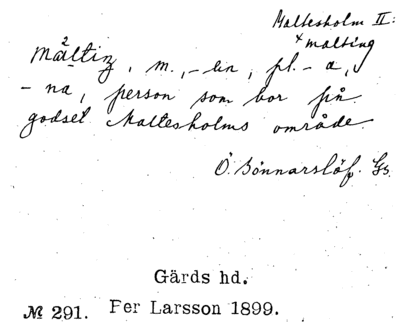 Maltesholm II:
× malting
mältiŋ, m., -en, pl. -a,
-na, person som bor på
godset Maltesholms område.
Ö. Sönnarslöf. Gs.
Gärds hd.
№ 291. Per Larsson 1899.